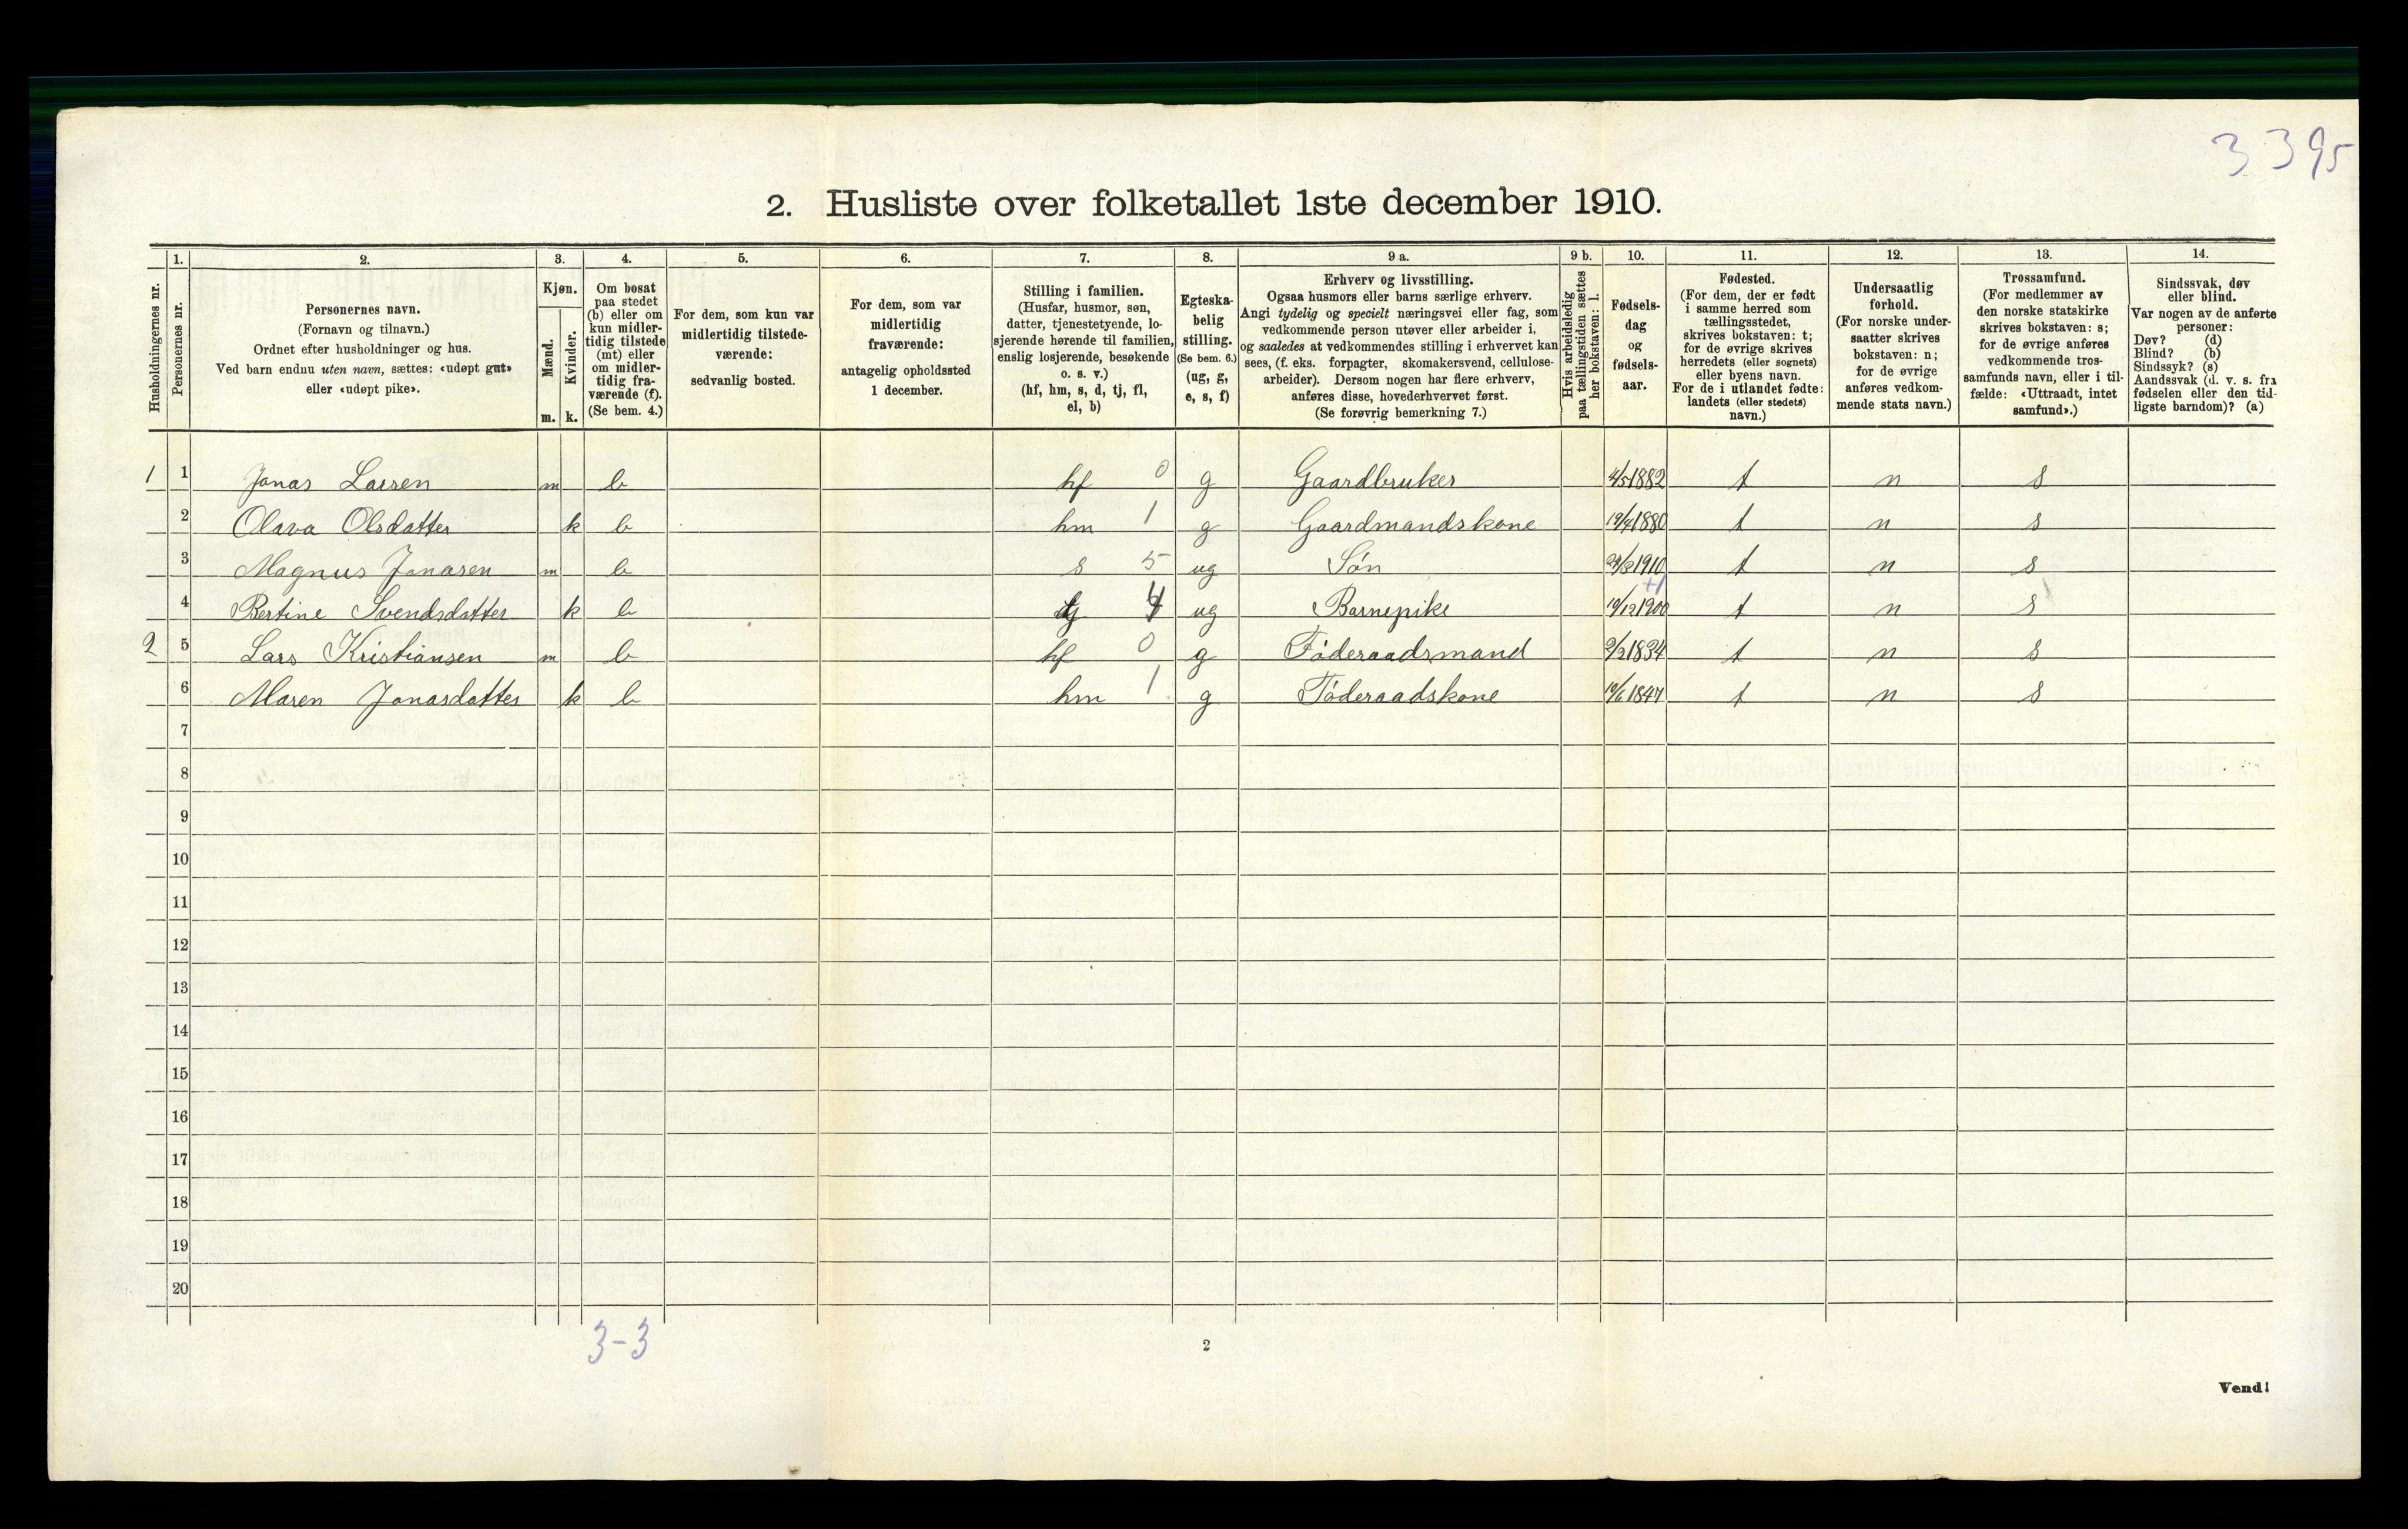 3395
2. Husliste over folketallet 1ste december 1910.
Husholdningernes nr.
1.
Personernes nr.
2.
Personernes navn.
(Fornavn og tilnavn.)
Ordnet efter husholdninger og hus.
Ved barn endnu uten navn, sættes: «udøpt gut»
eller «udøpt pike».
3.
Kjøn.
Mænd.
Kvinder.
m. k.
4.
Om bosat
paa stedet
(b) eller om
kun midler-
tidig tilstede
(mt) eller
om midler-
tidig fra-
værende (f).
(Se bem. 4.)
5.
For dem, som kun var
midlertidig tilstede-
værende:
sedvanlig bosted.
6.
For dem, som var
midlertidig
fraværende:
antagelig opholdssted
1 december.
7.
Stilling i familien.
(Husfar, husmor, søn,
datter, tjenestetyende, lo-
sjerende hørende til familien,
enslig losjerende, besøkende
o. s. v.)
(hf, hm, s, d, tj, fl,
el, b)
8.
Egteska-
belig
stilling.
(Se bem. 6.)
(ug, g,
e, s, f)
9 a.
Erhverv og livsstilling.
Ogsaa husmors eller barns særlige erhverv.
Angi tydelig og specielt næringsvei eller fag, som
vedkommende person utøver eller arbeider i,
og saaledes at vedkommendes stilling i erhvervet kan
sees, (f. eks. forpagter, skomakersvend, cellulose-
arbeider). Dersom nogen har flere erhverv,
anføres disse, hovederhvervet først.
(Se forøvrig bemerkning 7.)
9 b.
Hvis arbeidsledig
paa tællingstiden sættes
her bokstaven: l.
10.
Fødsels-
dag
og
fødsels-
aar.
11.
Fødested.
(For dem, der er født
i samme herred som
tællingsstedet,
skrives bokstaven: t;
for de øvrige skrives
herredets (eller sognets)
eller byens navn.
For de i utlandet fødte:
landets (eller stedets)
navn.)
12.
Undersaatlig
forhold.
(For norske under-
saatter skrives
bokstaven: n;
for de øvrige
anføres vedkom-
mende stats navn.)
13.
Trossamfund.
(For medlemmer av
den norske statskirke
skrives bokstaven: s;
for de øvrige anføres
vedkommende tros-
samfunds navn, eller i til-
fælde: «Uttraadt, intet
samfund».)
14.
Sindssvak, døv
eller blind.
Var nogen av de anførte
personer:
Døv? (d)
Blind? (b)
Sindssyk? (s)
Aandssvak (d. v. s. fra
fødselen eller den tid-
ligste barndom)? (a)
1 1 Jonas Larsen m b hf 0 g Gaardbruker 4/5 1882 t n s
2 Olava Olsdatter k b hm 1 g Gaardmandskone 19/4 1880 t n s
3 Magnus Jonasen m b s 5 ug Søn 1910 t n s
4 Bertine Svendsdatter k b tj 4 ug Barnepike 19/12 1900 +1 t n s
2 5 Lars Kristiansen m b hf 0 g Føderaadsmand 2/2 1834 t n s
6 Maren Jonasdatter k b hm 1 g Føderaadskone 19/6 1847 t n s
7
8
9
10
11
12
13
14
15
16
17
18
19
20
3-3
2
Vend!